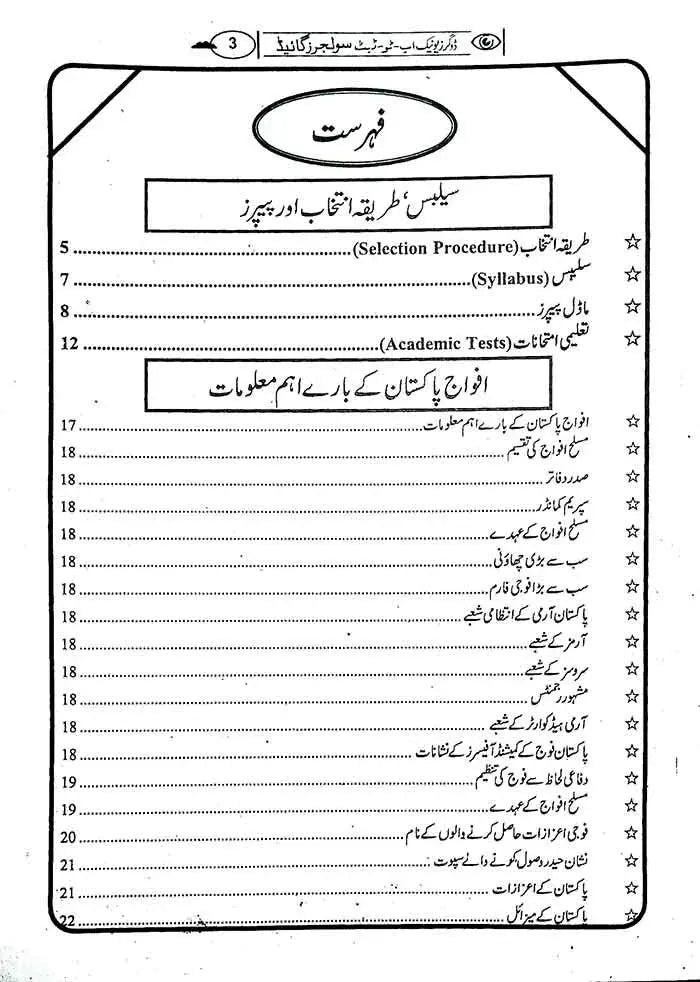 ڈوگرز یونیک اپ-ٹو-ڈیٹ سولجرز گائیڈ 3
فہرست
سیلبس، طریقہ انتخاب اور پیپرز
☆ طریقہ انتخاب (Selection Procedure) 5
☆ سلیبس (Syllabus) 7
☆ ماڈل پیپرز 8
☆ تعلیمی امتحانات (Academic Tests) 12
افواج پاکستان کے بارے اہم معلومات
☆ افواج پاکستان کے بارے اہم معلومات 17
☆ مسلح افواج کی تقسیم 18
☆ صدر دفاتر 18
☆ سپریم کمانڈر 18
☆ مسلح افواج کے عہدے 18
☆ سب سے بڑی چھاؤنی 18
☆ سب سے بڑا فوجی فارم 18
☆ پاکستان آرمی کے انتظامی شعبے 18
☆ آرمز کے شعبے 18
☆ سروسز کے شعبے 18
☆ مشہور رجمنٹس 18
☆ آرمی ہیڈ کوارٹر کے شعبے 18
☆ پاکستان فوج کے کمیشنڈ آفیسرز کے نشانات 18
☆ دفاعی لحاظ سے فوج کی تنظیم 19
☆ مسلح افواج کے عہدے 19
☆ فوجی اعزازات حاصل کرنے والوں کے نام 20
☆ نشان حیدر وصول کرنے والے سپوت 21
☆ پاکستان کے اعزازات 21
☆ پاکستان کے میزائل 22